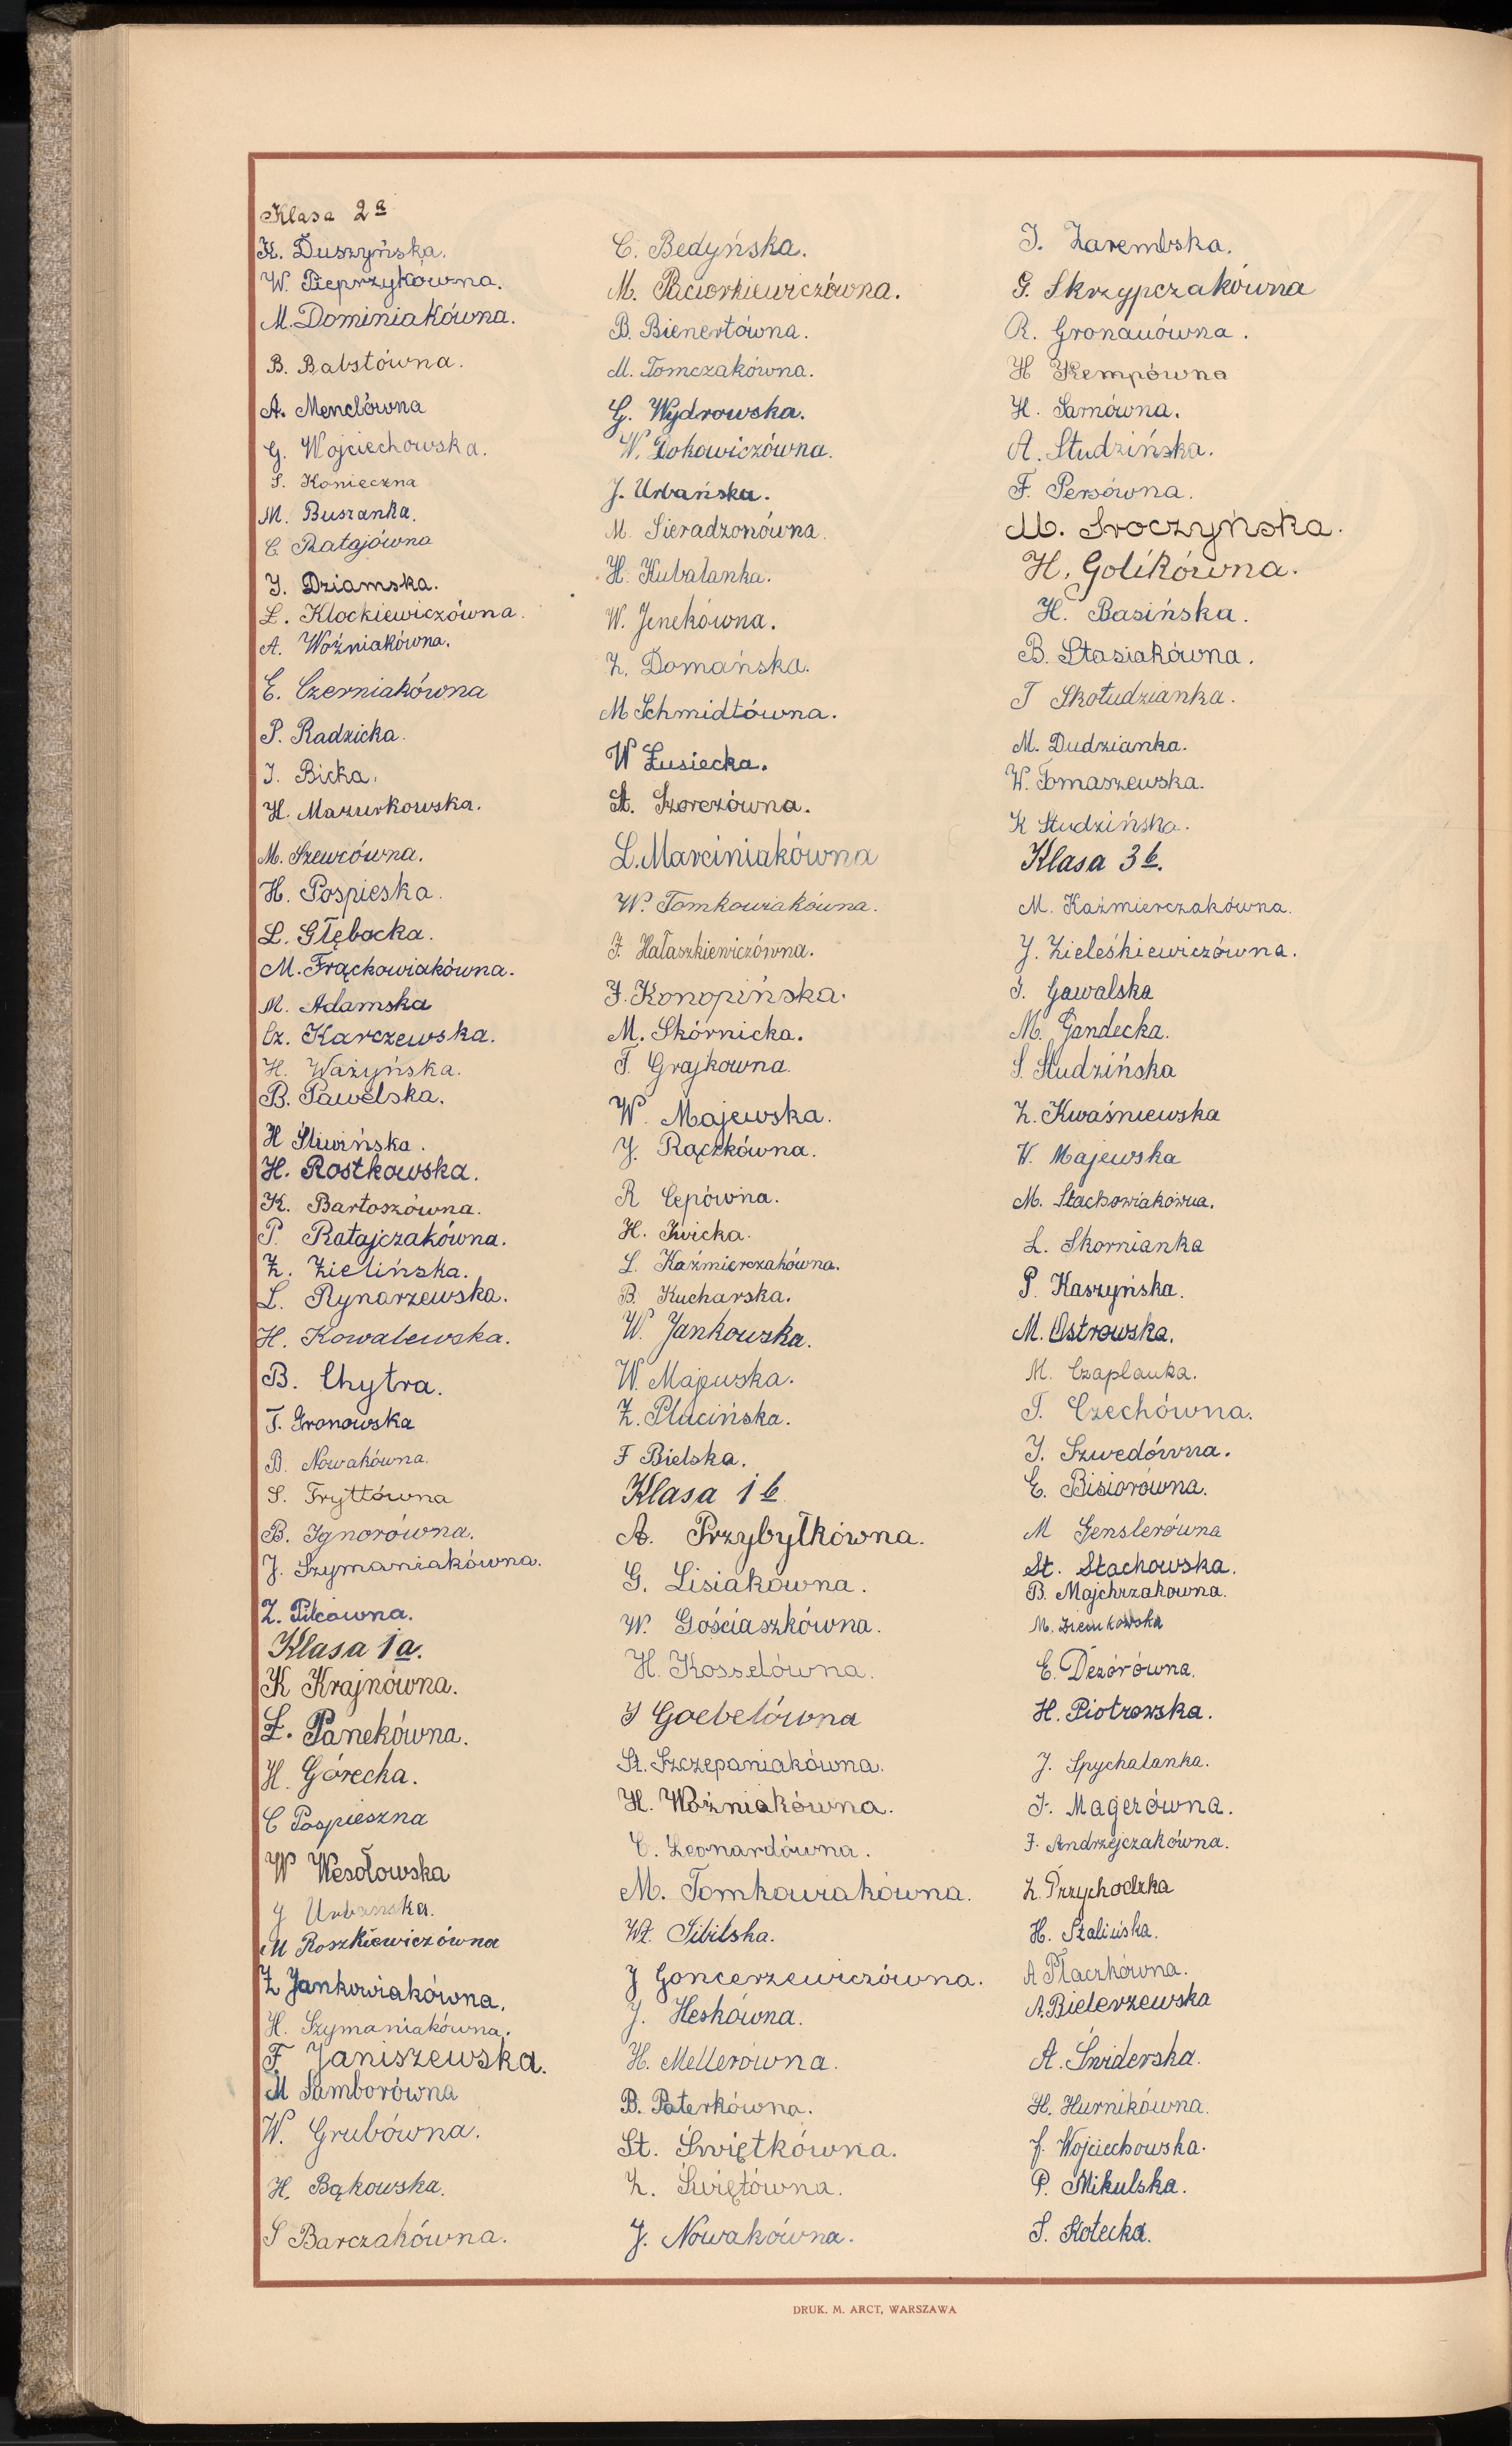 Klasa 2a
K. Duszyńska.
W. Pieprzykówna.
M. Dominiakówna.
B. Babstówna.
A. Menclówna
G. Wojciechowska.
S. Konieczna
M. Buszanka.
C. Ratajówna
I. Dziamska.
L. Klockiewiczówna.
A. Woźniakówna.
E. Czerniakówna
P. Radzicka.
I. Bicka.
H. Mazurkowska.
M. Szewcówna.
H. Pospieska.
L. Głębocka.
M. Frąckowiakówna.
M. Adamska
Cz. Karczewska.
H. Ważyńska.
B. Pawelska.
H Śliwińska.
H. Rostkowska.
K. Bartoszówna.
P. Ratajczakówna.
Z. Zielińska.
L. Rynarzewska.
H. Kowalewska.
B. Chytra.
T. Gronowska
B. Nowakówna.
S. Fryttówna
B. Ignorówna.
J. Szymaniakówna.
Z. Pilcówna.
Klasa 1a.
K Krajnówna.
Ł. Panekówna.
H. Górecka.
C Pospieszna
W Wesołowska
J Urbańska.
M Roszkiewiczówna
Z Jankowiakówna.
H. Szymaniakówna.
F. Janiszewska.
M Samborówna
W. Grubówna.
H. Bąkowska.
S Barczakówna.
C. Bedyńska.
M. Paciorkiewiczówna.
B. Bienertówna.
M. Tomczakówna.
G. Wydrowska.
W. Dokowiczówna.
J. Urbańska.
M. Sieradzonówna.
H. Kubalanka.
W. Jenekówna.
Z. Domańska.
M Schmidtówna.
W Łusiecka.
St. Szorczówna.
L. Marciniakówna
W. Tomkowiakówna.
F. Hałaszkiewiczówna.
J. Konopińska.
M. Skórnicka.
T. Grajkowna.
W. Majewska.
J. Rączkówna.
R Cepówna.
H. Kwicka.
L. Kaźmierczakówna.
B. Kucharska.
W. Jankowska.
W. Majewska.
Z. Plucińska.
F Bielska.
Klasa 1b
A. Przybyłkówna.
G. Lisiakówna.
W. Gościaszkówna.
H. Kosselówna.
I Goebelówna
St. Szczepaniakówna.
H. Woźniakówna.
C. Leonardówna.
M. Tomkowiakówna.
Wł. Sibilska.
J Goncerzewiczówna.
J. Heskówna.
H. Mellerówna.
B. Paterkówna.
St. Świętkówna.
Z. Świętówna.
J. Nowakówna.
I. Zarembska.
G. Skrzypczakówna
R. Gronauówna.
H Kempówna
H. Sarnówna.
A. Studzińska.
F. Persówna.
M. Sroczyńska.
H. Golikówna.
H. Basińska.
B. Stasiakówna.
T Skołudzianka.
M. Dudzianka.
W. Tomaszewska.
K Studzińska.
Klasa 3b.
M. Kaźmierczakówna.
J. Zieleśkiewiczówna.
I. Gawalska
M. Gandecka.
S. Studzińska
Z. Kwaśniewska
W. Majewska
M. Stachowiakówna.
L. Skornianka
P. Kaszyńska.
M. Ostrowska.
M. Czaplanka.
T. Czechówna.
I. Szwedówna.
E. Bisiorówna.
M Genslerówna
St. Stachowska.
B. Majchrzakowna.
M. Ziemkowska
E. Dezórówna.
H. Piotrowska.
J. Spychalanka.
F. Magerówna.
F. Andrzejczakówna.
Z. Przychodzka
H. Stalińska.
A Płaczkówna.
A. Bielerzewska
A. Świderska.
H. Hurnikówna.
J. Wojciechowska.
P. Mikulska.
S. Kotecka.
DRUK. M. ARCT, WARSZAWA